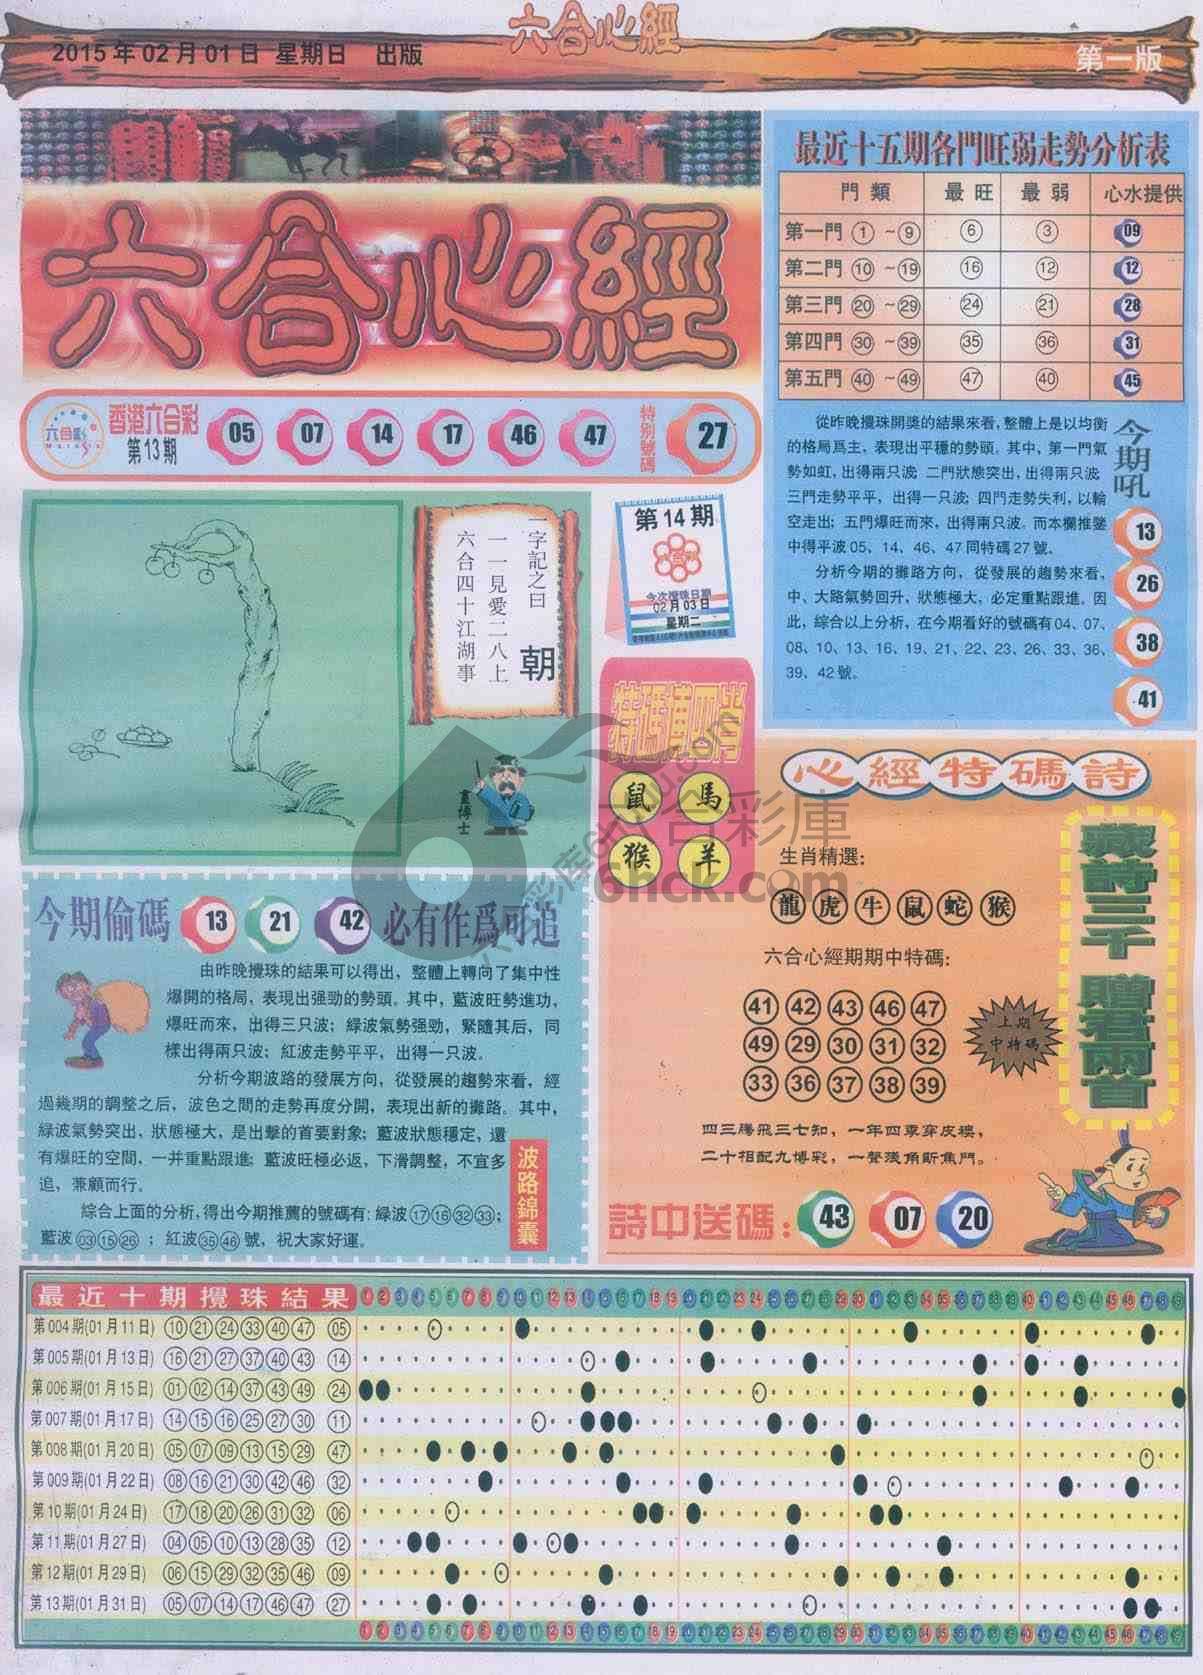 六合心經
2015年02月01日 星期日 出版
第一版
六合心經
香港六合彩
第13期
05 07 14 17 46 47
特別號碼
27
最近十五期各門旺弱走勢分析表
門類 最旺 最弱 心水提供
第一門 ①~⑨ 6 3 09
第二門 ⑩~⑲ 16 12 12
第三門 20~29 24 21 28
第四門 30~39 35 36 31
第五門 40~49 47 40 45
從昨晚攪珠開獎的結果來看,整體上是以均衡
的格局爲主,表現出平穩的勢頭。其中,第一門氣
勢如虹,出得兩只波;二門狀態突出,出得兩只波
三門走勢平平,出得一只波;四門走勢失利,以輪
空走出;五門爆旺而來,出得兩只波。而本欄推鑒
中得平波05、14、46、47同特碼27號。
分析今期的攤路方向,從發展的趨勢來看,
中、大路氣勢回升,狀態極大,必定重點跟進。因
此,綜合以上分析,在今期看好的號碼有04、07、
08、10、13、16、19、21、22、23、26、33、36、
39、42號。
今期吼
13
26
38
41
一字記之曰 朝
一一見愛二八上
六合四十江湖事
畫博士
第14期
今次攪珠日期
02月03日
星期二
特碼博四肖
鼠 馬
猴 羊
六合彩庫
6hck.com
心經特碼詩
生肖精選:
龍虎牛鼠蛇猴
六合心經期期中特碼:
41 42 43 46 47
49 29 30 31 32
33 36 37 38 39
上期
中特碼
藏詩三千 贈君兩首
四三騰飛三七知,一年四季穿皮襖,
二十相配九博彩,一聲淺角斷焦門。
詩中送碼: 43 07 20
今期偷碼 13 21 42 必有作爲可追
由昨晚攪珠的結果可以得出,整體上轉向了集中性
爆開的格局,表現出强勁的勢頭。其中,藍波旺勢進功,
爆旺而來,出得三只波;緑波氣勢强勁,緊隨其后,同
樣出得兩只波;紅波走勢平平,出得一只波。
分析今期波路的發展方向,從發展的趨勢來看,經
過幾期的調整之后,波色之間的走勢再度分開,表現出新的攤路。其中,
緑波氣勢突出,狀態極大,是出擊的首要對象;藍波狀態穩定,還
有爆旺的空間,一并重點跟進;藍波旺極必返,下滑調整,不宜多
追,兼顧而行。
綜合上面的分析,得出今期推薦的號碼有:緑波17 16 32 33;
藍波03 15 26;紅波35 46號,祝大家好運。
波路錦囊
最近十期攪珠結果 1 2 3 4 5 6 7 8 9 10 11 12 13 14 15 16 17 18 19 20 21 22 23 24 25 26 27 28 29 30 31 32 33 34 35 36 37 38 39 40 41 42 43 44 45 46 47 48 49
第004期(01月11日) 10 21 24 33 40 47 05
第005期(01月13日) 16 21 27 37 40 43 14
第006期(01月15日) 01 02 14 37 43 49 24
第007期(01月17日) 14 15 16 25 27 30 11
第008期(01月20日) 05 07 09 13 15 29 47
第009期(01月22日) 08 16 21 30 42 46 32
第10期(01月24日) 17 18 20 26 31 32 06
第11期(01月27日) 04 05 10 13 28 35 12
第12期(01月29日) 06 15 29 32 35 46 09
第13期(01月31日) 05 07 14 17 46 47 27
1 2 3 4 5 6 7 8 9 10 11 12 13 14 15 16 17 18 19 20 21 22 23 24 25 26 27 28 29 30 31 32 33 34 35 36 37 38 39 40 41 42 43 44 45 46 47 48 49